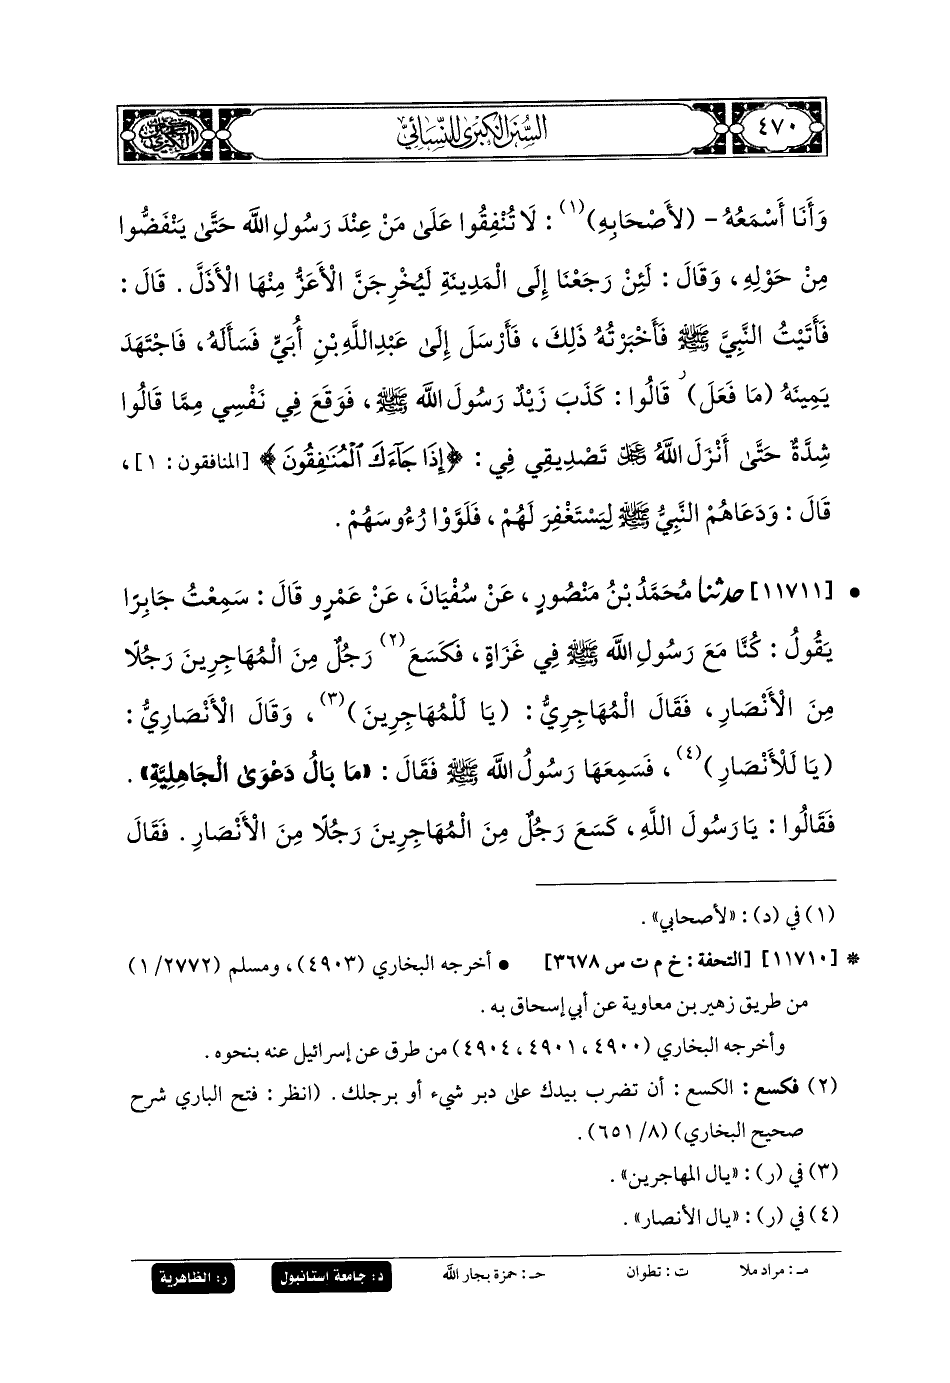 ٤٧٠
السُّنَنُ الْكُبْرَى لِلنَّسَائِيِّ
وَأَنَا أَسْمَعُهُ - (لأَصْحَابِهِ)(١) : لَا تُنْفِقُوا عَلَى مَنْ عِنْدَ رَسُولِ اللَّه حَتَّى يَنْفَضُّوا
مِنْ حَوْلِهِ، وَقَالَ : لَئِنْ رَجَعْنَا إِلَى الْمَدِينَةِ لَيُخْرِجَنَّ الْأَعَزُّ مِنْهَا الْأَذَلَّ . قَالَ :
فَأَتَيْتُ النَّبِيَّ ﷺ فَأَخْبَرْتُهُ ذَلِكَ، فَأَرْسَلَ إِلَى عَبْدِاللَّهِ بْنِ أُبَيٍّ فَسَأَلَهُ، فَاجْتَهَدَ
يَمِينَهُ (مَا فَعَلَ) قَالُوا : كَذَبَ زَيْدٌ رَسُولَ اللَّه ﷺ، فَوَقَعَ فِي نَفْسِي مِمَّا قَالُوا
شِدَّةٌ حَتَّى أَنْزَلَ اللَّهُ ﷿ تَصْدِيقِي فِي : ﴿إِذَا جَآءَكَ ٱلْمُنَٰفِقُونَ﴾ [المنافقون : ١]،
قَالَ : وَدَعَاهُمُ النَّبِيُّ ﷺ لِيَسْتَغْفِرَ لَهُمْ، فَلَوَّوْا رُءُوسَهُمْ .
• [١١٧١١] حدثنا مُحَمَّدُ بْنُ مَنْصُورٍ، عَنْ سُفْيَانَ، عَنْ عَمْرٍو قَالَ : سَمِعْتُ جَابِرًا
يَقُولُ : كُنَّا مَعَ رَسُولِ اللَّه ﷺ فِي غَزَاةٍ، فَكَسَعَ(٢) رَجُلٌ مِنَ الْمُهَاجِرِينَ رَجُلًا
مِنَ الْأَنْصَارِ، فَقَالَ الْمُهَاجِرِيُّ : (يَا لَلْمُهَاجِرِينَ)(٣)، وَقَالَ الْأَنْصَارِيُّ :
(يَا لَلْأَنْصَارِ)(٤)، فَسَمِعَهَا رَسُولُ اللَّه ﷺ فَقَالَ : «مَا بَالُ دَعْوَى الْجَاهِلِيَّةِ» .
فَقَالُوا : يَا رَسُولَ اللَّهِ، كَسَعَ رَجُلٌ مِنَ الْمُهَاجِرِينَ رَجُلًا مِنَ الْأَنْصَارِ . فَقَالَ
(١) في (د) : «لأصحابي» .
* [١١٧١٠] [التحفة : خ م ت س ٣٦٧٨] • أخرجه البخاري (٤٩٠٣)، ومسلم (٢٧٧٢/ ١)
من طريق زهير بن معاوية عن أبي إسحاق به .
وأخرجه البخاري (٤٩٠٠، ٤٩٠١، ٤٩٠٤) من طرق عن إسرائيل عنه بنحوه .
(٢) فكسع : الكسع : أن تضرب بيدك على دبر شيء أو برجلك . (انظر : فتح الباري شرح
صحيح البخاري) (٨/ ٦٥١) .
(٣) في (ر) : «يال المهاجرين» .
(٤) في (ر) : «يال الأنصار» .
مـ : مراد ملا ت : تطوان حـ : حمزة بجار الله د : جامعة استانبول ر : الظاهرية